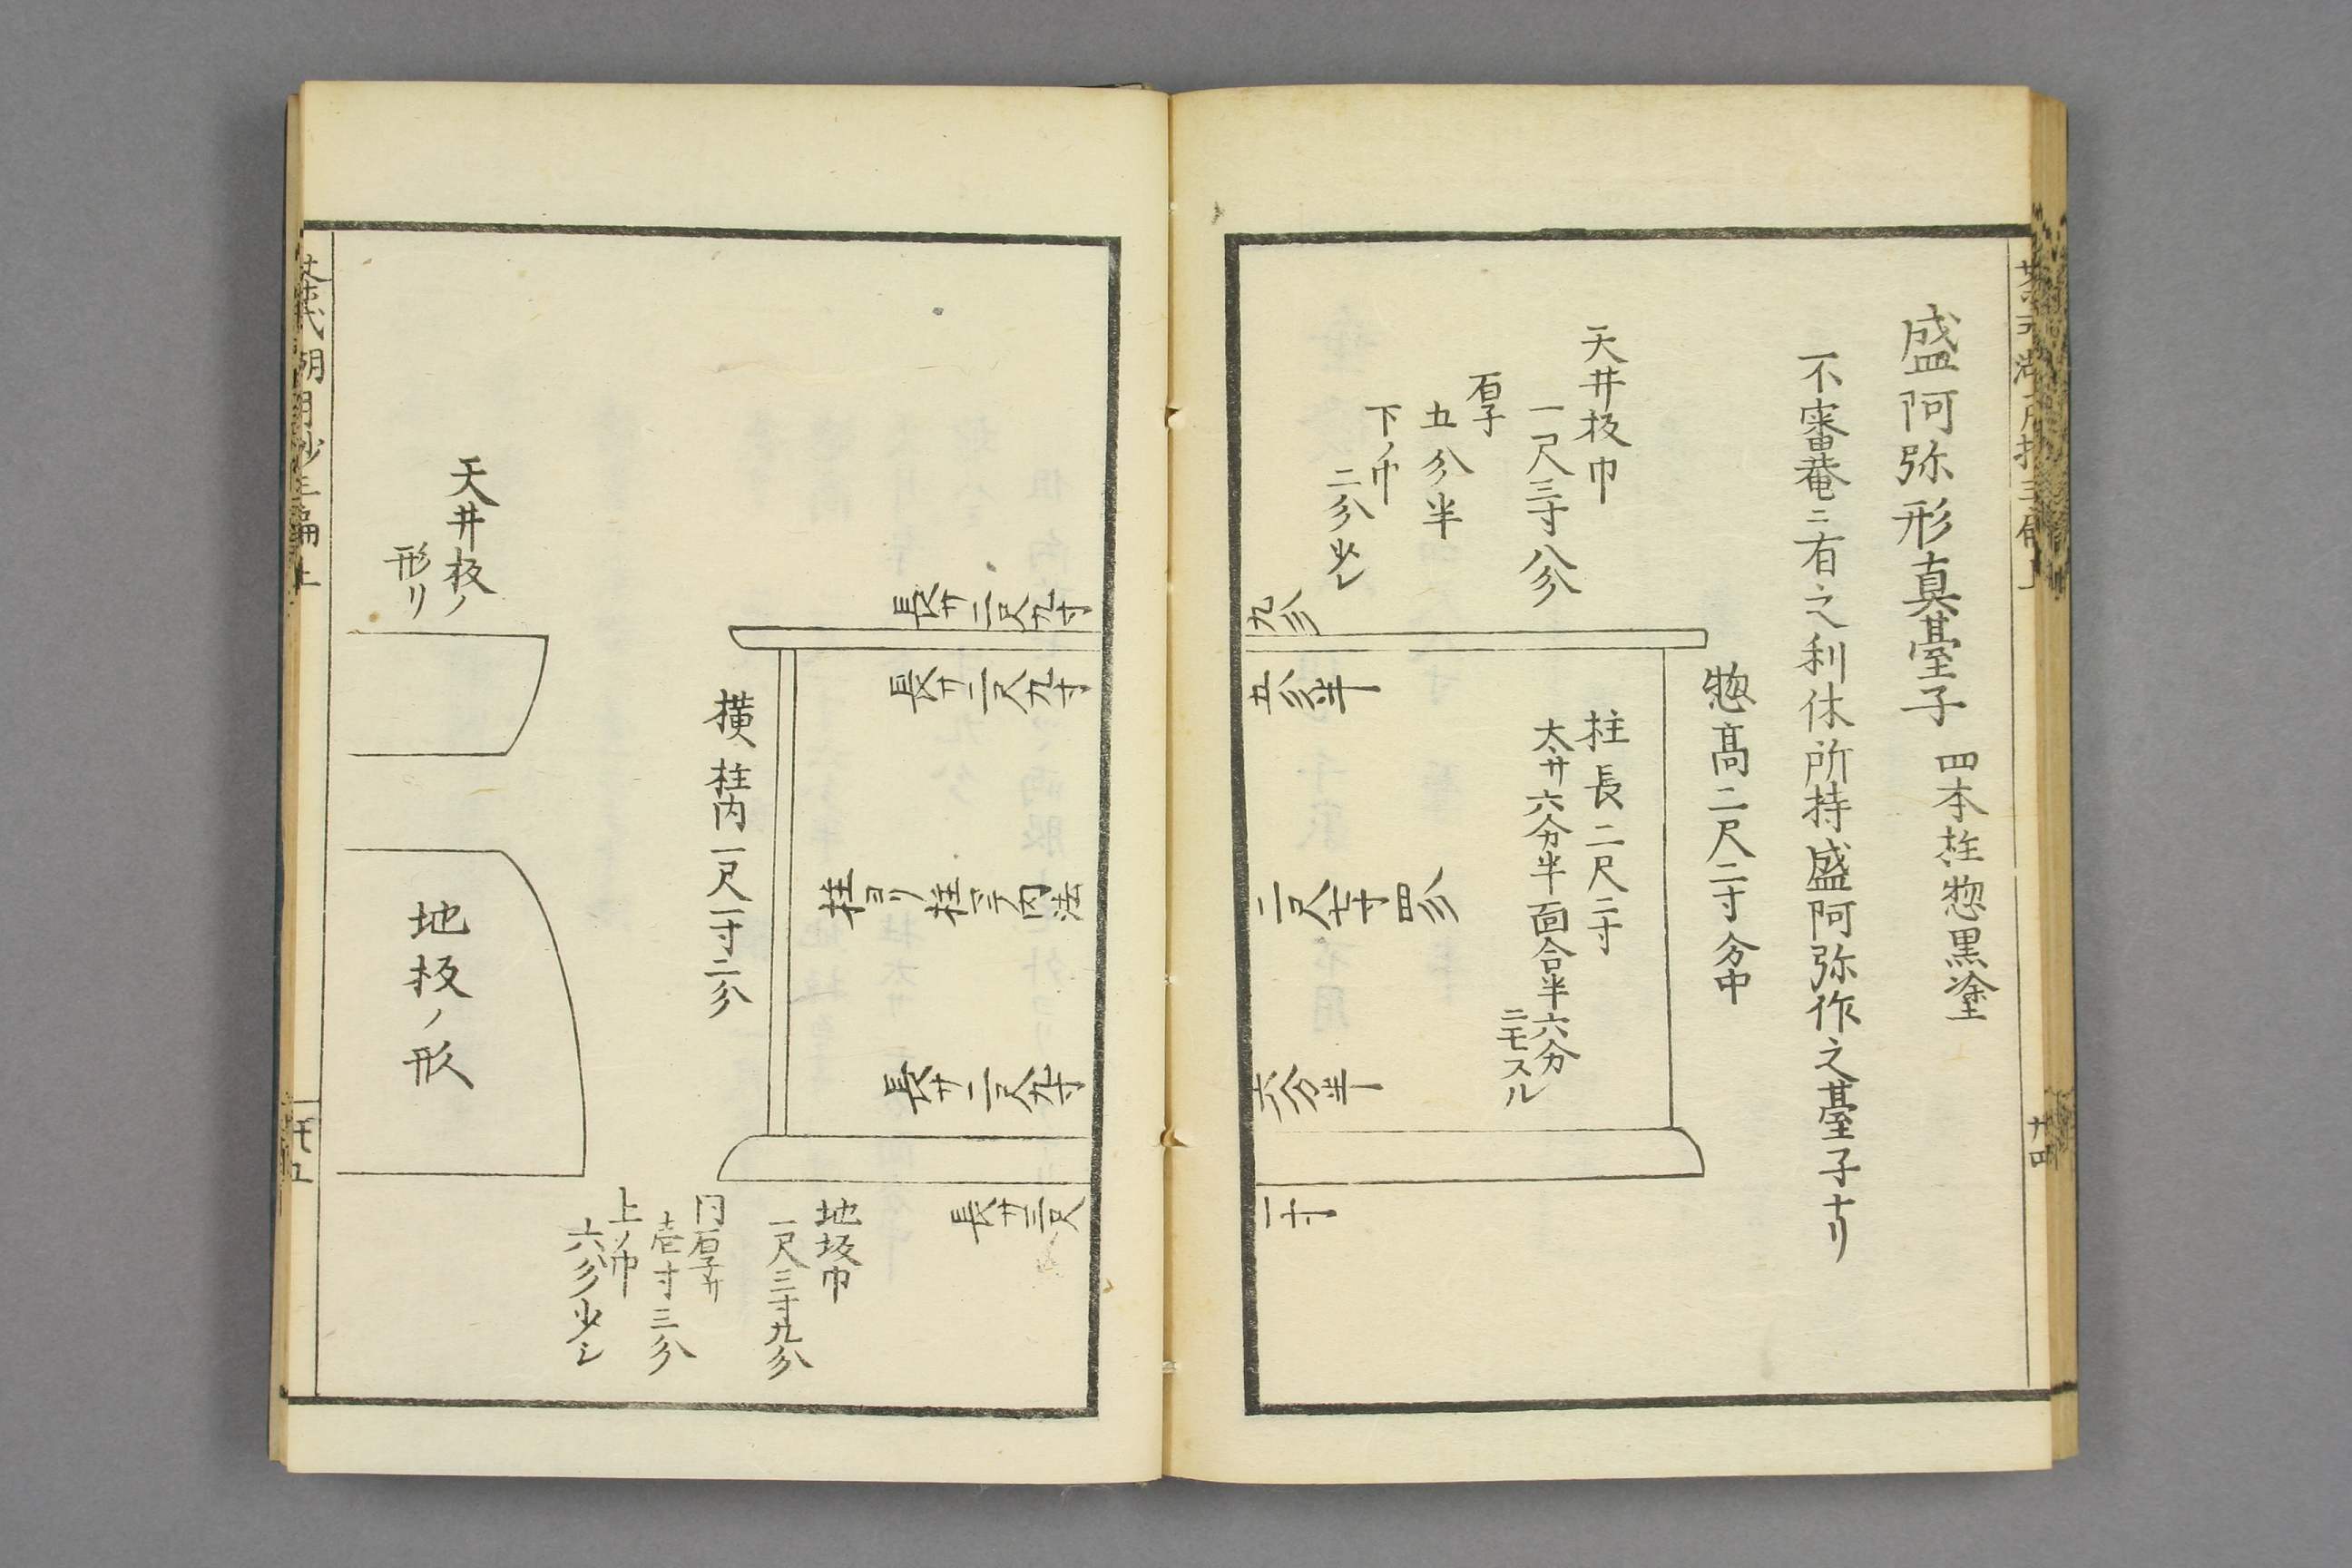 盛阿弥形真臺子 四本柱惣黒塗
不審菴ニ有之利休所持盛阿弥作之臺子ナリ
惣高二尺二寸分中
天井板巾
一尺三寸八分
厚
五分半
下ノ巾
二分少シ
柱長二尺二寸
太サ六分半面合半六分
ニモスル
九分
五分半
二尺七寸四分
六分半
一寸
廿四
長サ二尺九寸
長サ二尺九寸
柱ヨリ柱マテ内法
長サ二尺九寸
長サ三尺
横柱内一尺一寸二分
地板巾
一尺三寸九分
同厚サ
壱寸三分
上ノ巾
六分少シ
天井板ノ
形リ
地板ノ形
茶式湖月抄三編上